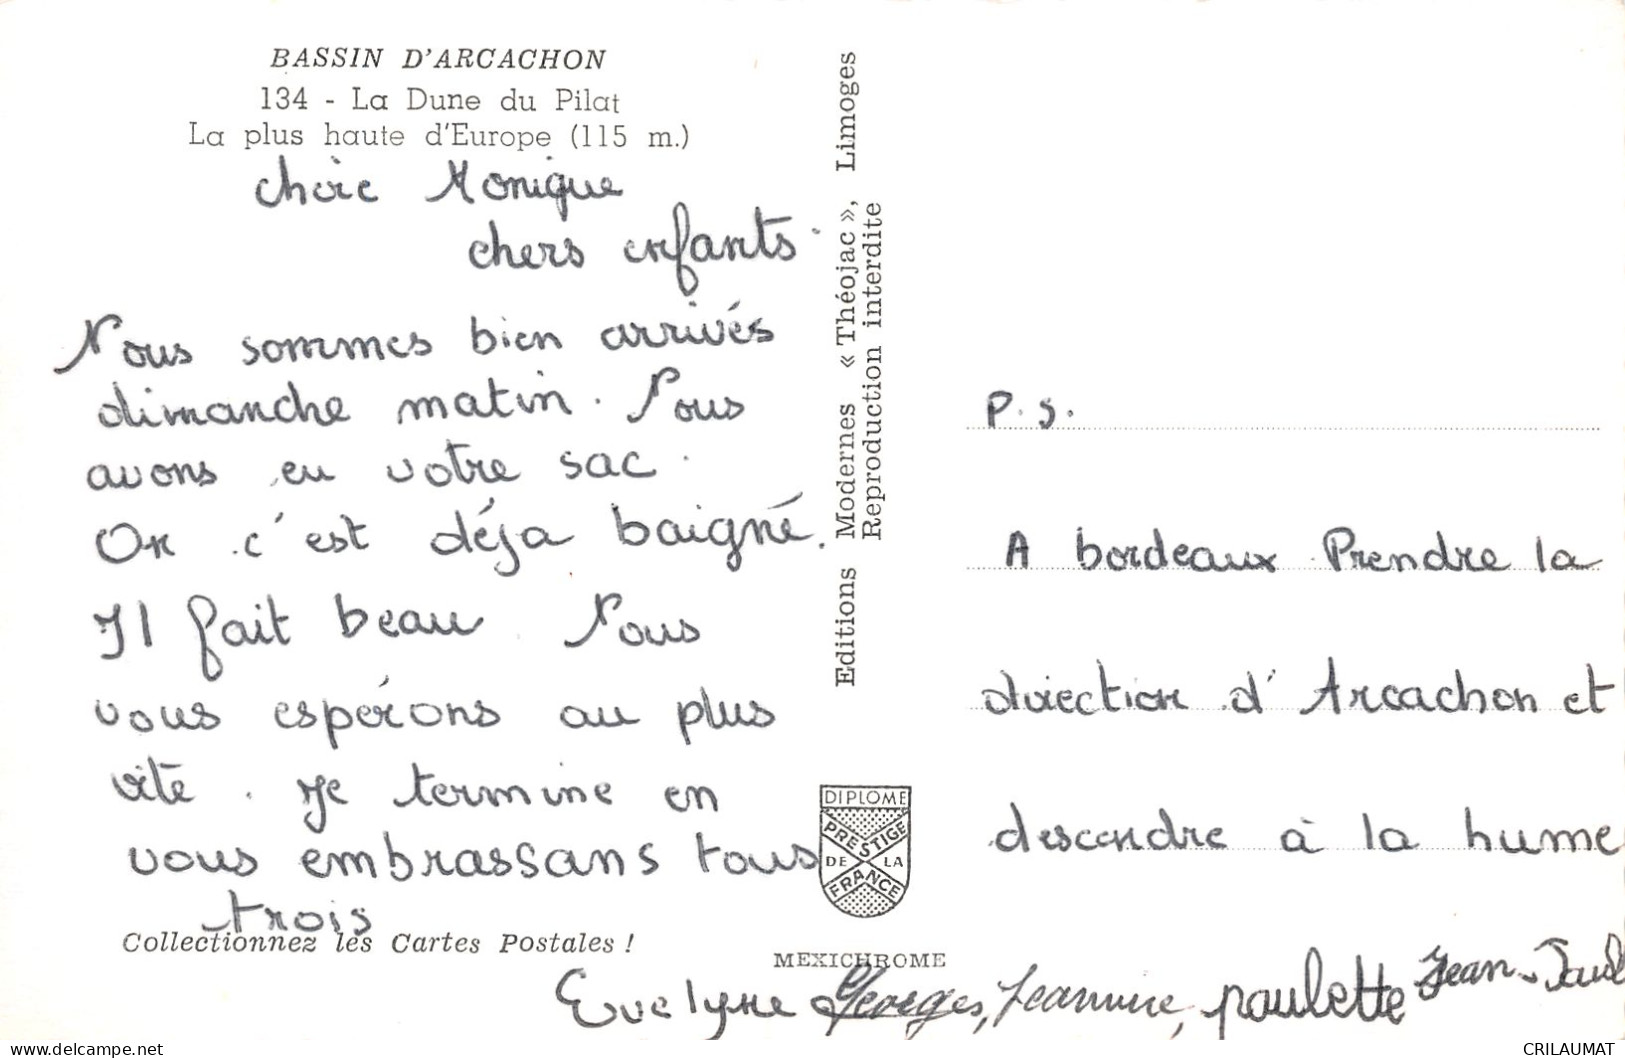 BASSIN D'ARCACHON
134 - La Dune du Pilat
La plus haute d'Europe (115 m.)
chère Monique
chers enfants.
Nous sommes bien arrivés
dimanche matin. Nous
avons eu votre sac.
On c'est déja baigné.
Il fait beau Nous
vous espérons au plus
vite. Je termine en
vous embrassans tous
trois
Collectionnez les Cartes Postales !
Editions Modernes « Théojac », Limoges
Reproduction interdite
DIPLOME
PRESTIGE
DE LA
FRANCE
MEXICHROME
P.S.
A bordeaux Prendre la
direction d'Arcachon et
descendre à la hume
Evelyne Georges, Jeannine, paulette Jean-Paul
delcampe.net
CRILAUMAT